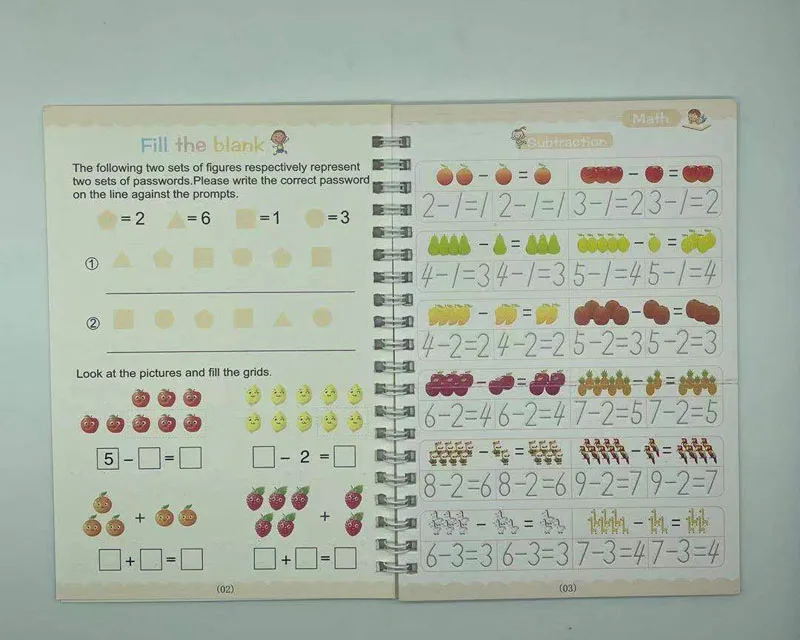 Fill the blank
The following two sets of figures respectively represent
two sets of passwords.Please write the correct password
on the line against the prompts.
=2 =6 =1 =3
①
②
Look at the pictures and fill the grids.
5 - = - 2 =
+ +
+ = + =
(02)
Math
Subtraction
- = - =
2-1=1 2-1=1 3-1=2 3-1=2
- = - =
4-1=3 4-1=3 5-1=4 5-1=4
- = - =
4-2=2 4-2=2 5-2=3 5-2=3
- = - =
6-2=4 6-2=4 7-2=5 7-2=5
- = - =
8-2=6 8-2=6 9-2=7 9-2=7
- = - =
6-3=3 6-3=3 7-3=4 7-3=4
(03)